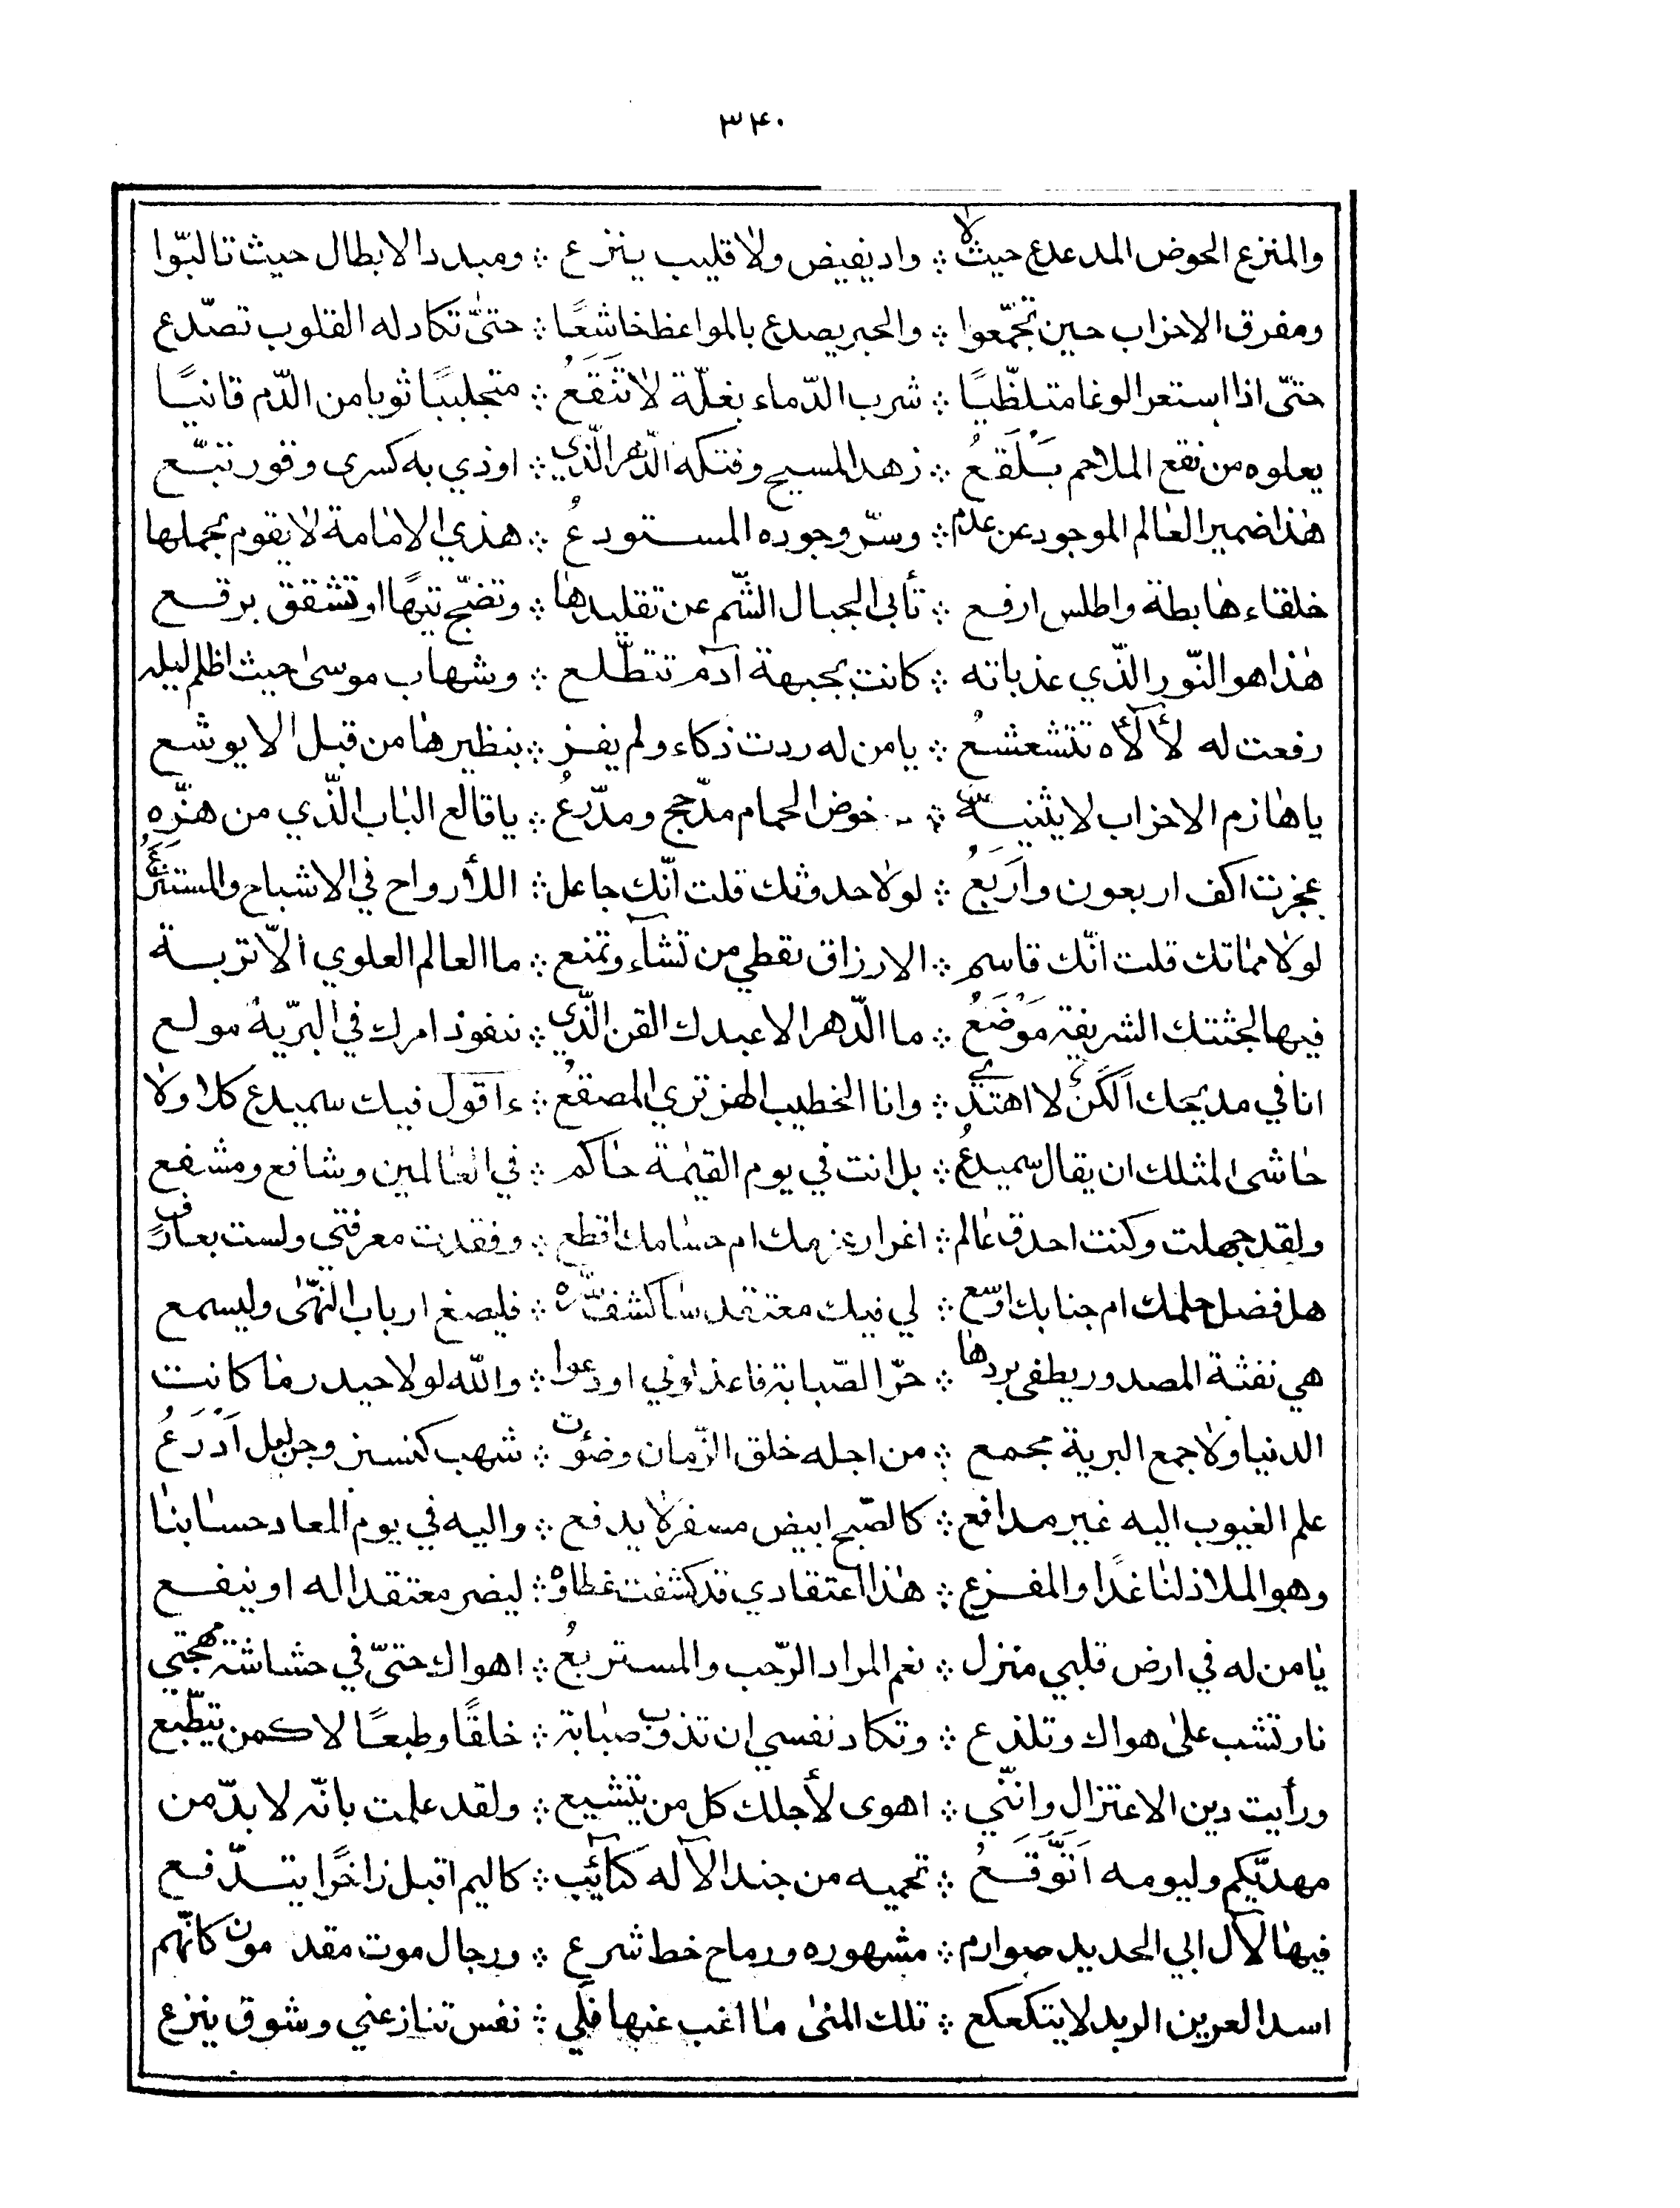 ٣٤٠
والمنزع الحوض المدعدع حيث لا ∴ واد يفيض ولا قليب ينزع ∴ ومبدد الابطال حيث تالبّوا
ومفرق الاحزاب حين تجمّعوا ∴ والحبر يصدع بالمواعظ خاشعًا ∴ حتىّ تكاد له القلوب تصّدع
حتىّ اذا استعر الوغا متلظّيًا ∴ شرب الدّماء بغلّة لا تَنَقَعُ ∴ متجلببًا ثوبا من الدّم قانيًا
يعلوه من نقع الملاحم بَلْقَعُ ∴ زهد المسيح وفتكه الدّهر الّذي ∴ اوذي به كسرى وفور تبّع
هٰذا ضمير العٰالم الموجود عن عدم ∴ وسرّ وجوده المستودعُ ∴ هذي الامٰانة لا يقوم بحملها
خلقاء هٰابطة واطلس ارفع ∴ تأبى الجبال الشّم عن تقليدها ∴ وتضجّ تيهًا او تشقق برقع
هٰذا هو النّور الّذي عذباته ∴ كانت بجبهة آدم تتطّلع ∴ وشهاب موسىٰ حيث اظلم ليله
رفعت له لألآؤه تتشعشعُ ∴ يا من له ردت ذكاء ولم يفز ∴ بنظيرهٰا من قبل الا يوشع
يا هٰازم الاحزاب لا يثنيه ∴ خوض الحمام مدّجج ومدّرعُ ∴ يا قالع البٰاب الّذي من هزّه
عجزت اكف اربعون وَاَرَبَعُ ∴ لولا حدوثك قلت انّك جاعل ∴ اللأرواح في الاشباح والمستنزَعُ
لولا ممٰاتك قلت انّك قاسم ∴ الارزاق تقطي من تشآء وتمنع ∴ ما العالم العلوي الاّ تربة
فيها لجثتك الشريفة مَوْضَعُ ∴ ما الّدهر الا عبدك القن الّذي ∴ بنفوذ امرك في البرّية مولع
انا في مديحك اَلكَنٌ لا اهتدي ∴ وانا الخطيب الهزتري المصقعُ ∴ ءاقول فيك سميدع كلا ولا
حٰاشىٰ لمثلك ان يقال سميدعُ ∴ بل انت في يوم القيٰمة حٰاكم ∴ في العٰالمين وشافع ومشفع
ولقد جهلت وكنت احذق عٰالم ∴ اغرار عزمك ام حسٰامك اقطع ∴ وفقدت معرفتي ولست بعارفٍ
هل فضل حلمك ام جنابك اوسع ∴ لي فيك معتقد سٰاكشف سرّه ∴ فليصغ ارباب النّهٰى وليسمع
هي نفثة المصدور يطفي بردهٰا ∴ حرّ الصّبابة فاعذلوني او دعوا ∴ والله لولا حيدر مٰا كانت
الدنيا ولا جمع البرية مجمع ∴ من اجله خلق الزّمان وضئوت ∴ شهب كنسن وجن ليل اَدْرَعُ
علم الغيوب اليه غير مدافع ∴ كالصّبح ابيض مسفر لا يدفع ∴ واليه في يوم المعاد حسٰابنٰا
وهو الملاذ لنٰا غدًا والمفزع ∴ هٰذا اعتقادي قد كشفت غطاؤه ∴ ليضر معتقدا له او ينفع
يٰا من له في ارض قلبي منزل ∴ نعم المراد الرّحب والمستربعُ ∴ اهواك حتىّ في حشاشة مهجتي
نار تشب علىٰ هواك وتلذع ∴ وتكاد نفسي ان تذوب صبٰابة ∴ خلقًا وطبعًا لا كمن يتطّبع
ورأيت دين الاعتزال وانّني ∴ اهوى لأجلك كل من يتشيع ∴ ولقد علمت بانّه لا بدّ من
مهديّكم وليومه اَتَوَّقَعُ ∴ تحميه من جند الآله كتآئب ∴ كاليم اقبل زاخرًا يتدّفع
فيهٰا لآل ابي الحديد صوارم ∴ مشهوره ورماح خط شرع ∴ ورجال موت مقدمون كانّهم
اسد العرين الربد لا يتكعكع ∴ تلك المنىٰ مٰا اغب عنها فلي ∴ نفس تنازعني وشوق ينزع